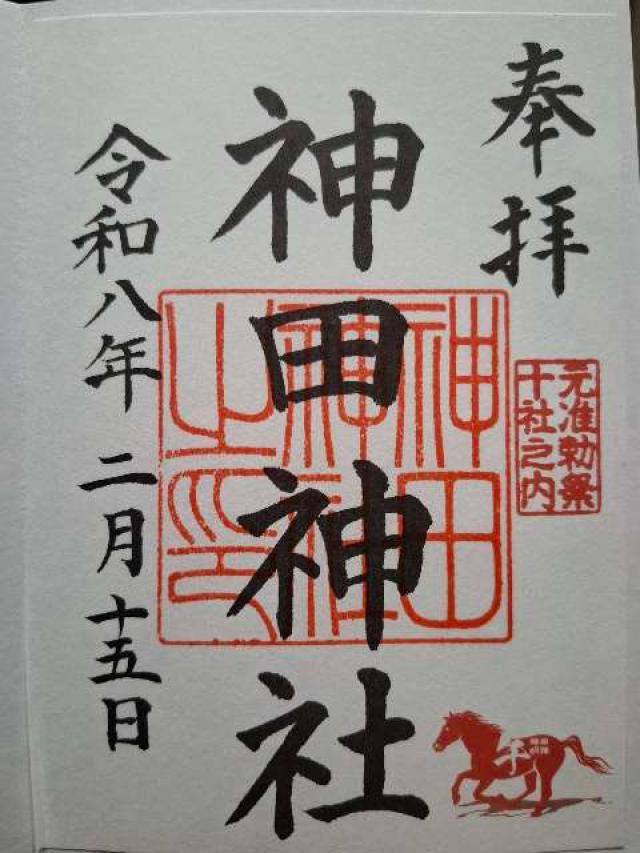 奉拝
元准勅祭
十社之内
神田神社
神田
神社
之印
令和八年 二月十五日